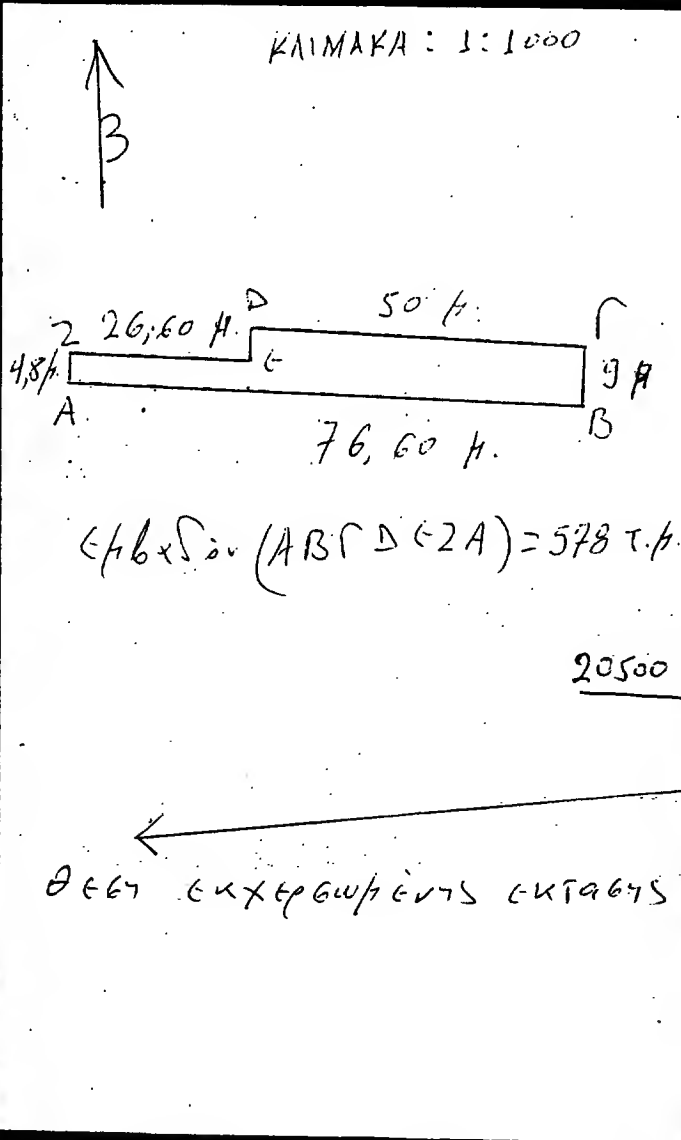 ΚΛΙΜΑΚΑ: 1:1000
Β
Δ
50 μ.
Γ
Ζ 26,60 μ.
Ε
4,8μ.
9 μ
Α
Β
76,60 μ.
Εμβαδόν (ΑΒΓΔΕΖΑ) = 578 τ.μ.
20500
Θέση εκχερσωμένης εκτασης